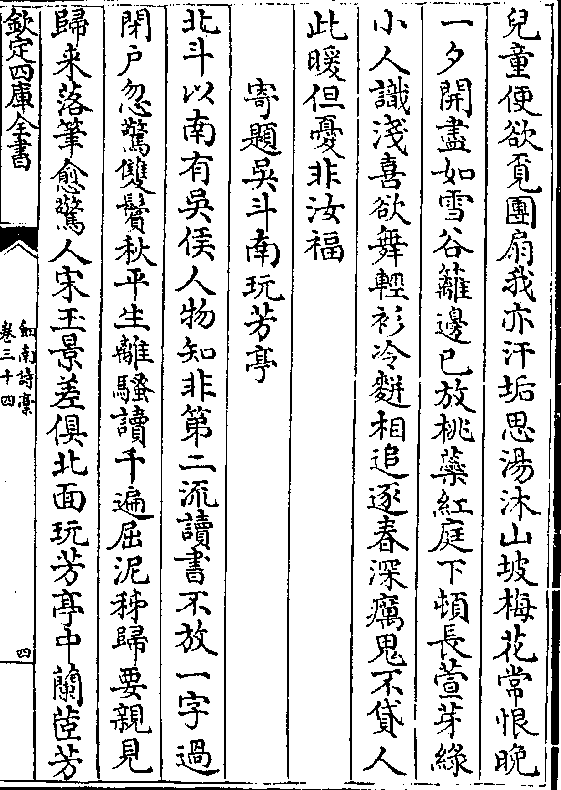 兒童便欲覓團扇我亦汗垢思湯沐山坡梅花常恨晚
一夕開盡如雪谷籬邊已放桃蘂紅庭下頓長萱芽綠
小人識淺喜欲舞輕衫冷麫相追逐春深癘鬼不貸人
此暖但憂非汝福
寄題吳斗南玩芳亭
北斗以南有吳侯人物知非第二流讀書不放一字過
閉戶忽驚雙鬢秋平生離騷讀千遍屈泥秭歸要親見
歸来落筆愈驚人宋玉景差俱北面玩芳亭中蘭茝芳
欽定四庫全書
劎南詩藁
卷三十四
四